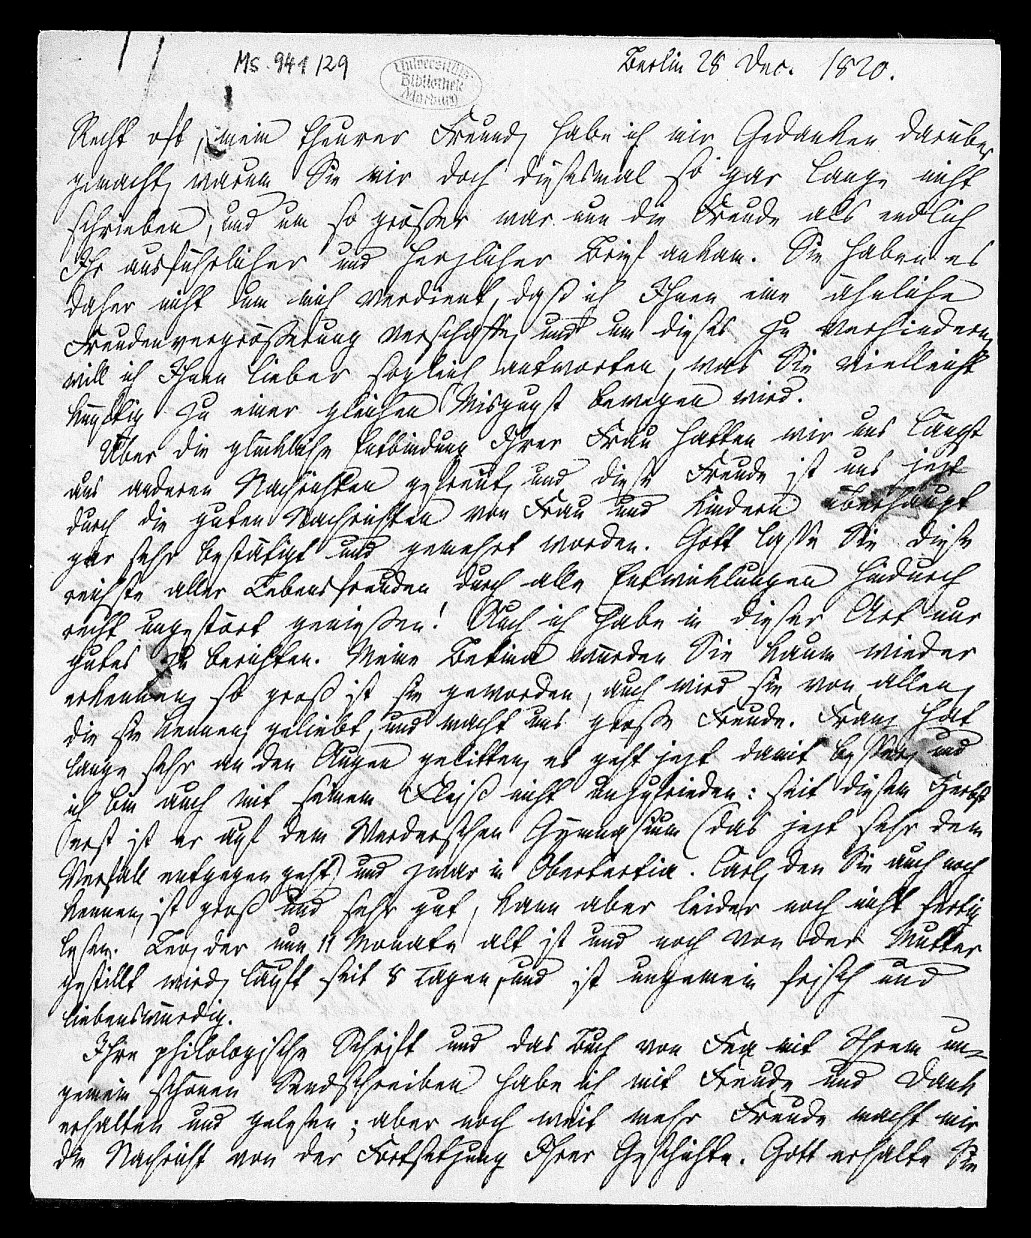 Ms. 941/29
Universitäts-
Bibliothek
Marburg
Berlin 28 Dec. 1820.
Recht oft, mein theurer Freund, habe ich mir Gedanken darüber
gemacht, warum Sie mir doch diesesmal so gar lange nicht
schrieben, und um so größer war nun die Freude als endlich
Ihr ausführlicher und herzlicher Brief ankam. Sie haben es
daher nicht um mich verdient, daß ich Ihnen eine ähnliche
Freudenvergrößerung verschaffe, und um dieses zu verhindern,
will ich Ihnen lieber sogleich antworten, was Sie vielleicht
künftig zu einer gleichen Misgunst bewegen wird.
Über die glückliche Entbindung Ihrer Frau hatten wir uns längst
aus anderen Nachrichten gefreut, und diese Freude ist uns jezt
durch die guten Nachrichten von Frau und Kindern überhaupt
gar sehr bestätigt und gemehrt worden. Gott lasse Sie diese
reichste aller Lebensfreuden durch alle Entwicklungen hindurch
recht ungestört genießen! Auch ich habe in dieser Art nur
gutes zu berichten. Meine Betina würden Sie kaum wieder
erkennen, so groß ist sie geworden, auch wird sie von allen,
die sie kennen, geliebt, und macht uns große Freude. Franz hat
lange sehr an den Augen gelitten, es geht jezt damit besser, und
ich bin auch mit seinem Fleiß nicht unzufrieden: seit diesem Herbst
erst ist er auf dem Werderschen Gymnasium (das jezt sehr dem
Verfall entgegen geht) und zwar in Obertertia. Carl, den Sie auch noch
kennen, ist groß und sehr gut, kann aber leider noch nicht fertig
lesen. Leo, der nun 11 Monate alt ist und noch von der Mutter
gestillt wird, läuft seit 8 Tagen, und ist ungemein frisch und
liebenswürdig.
Ihre philologische Schrift und das Buch von Fea mit Ihrem un-
gemein schönen Sendschreiben habe ich mit Freude und Dank
erhalten und gelesen; aber noch weit mehr Freude macht mir
die Nachricht von der Fortsetzung Ihrer Geschichte. Gott erhalte Sie